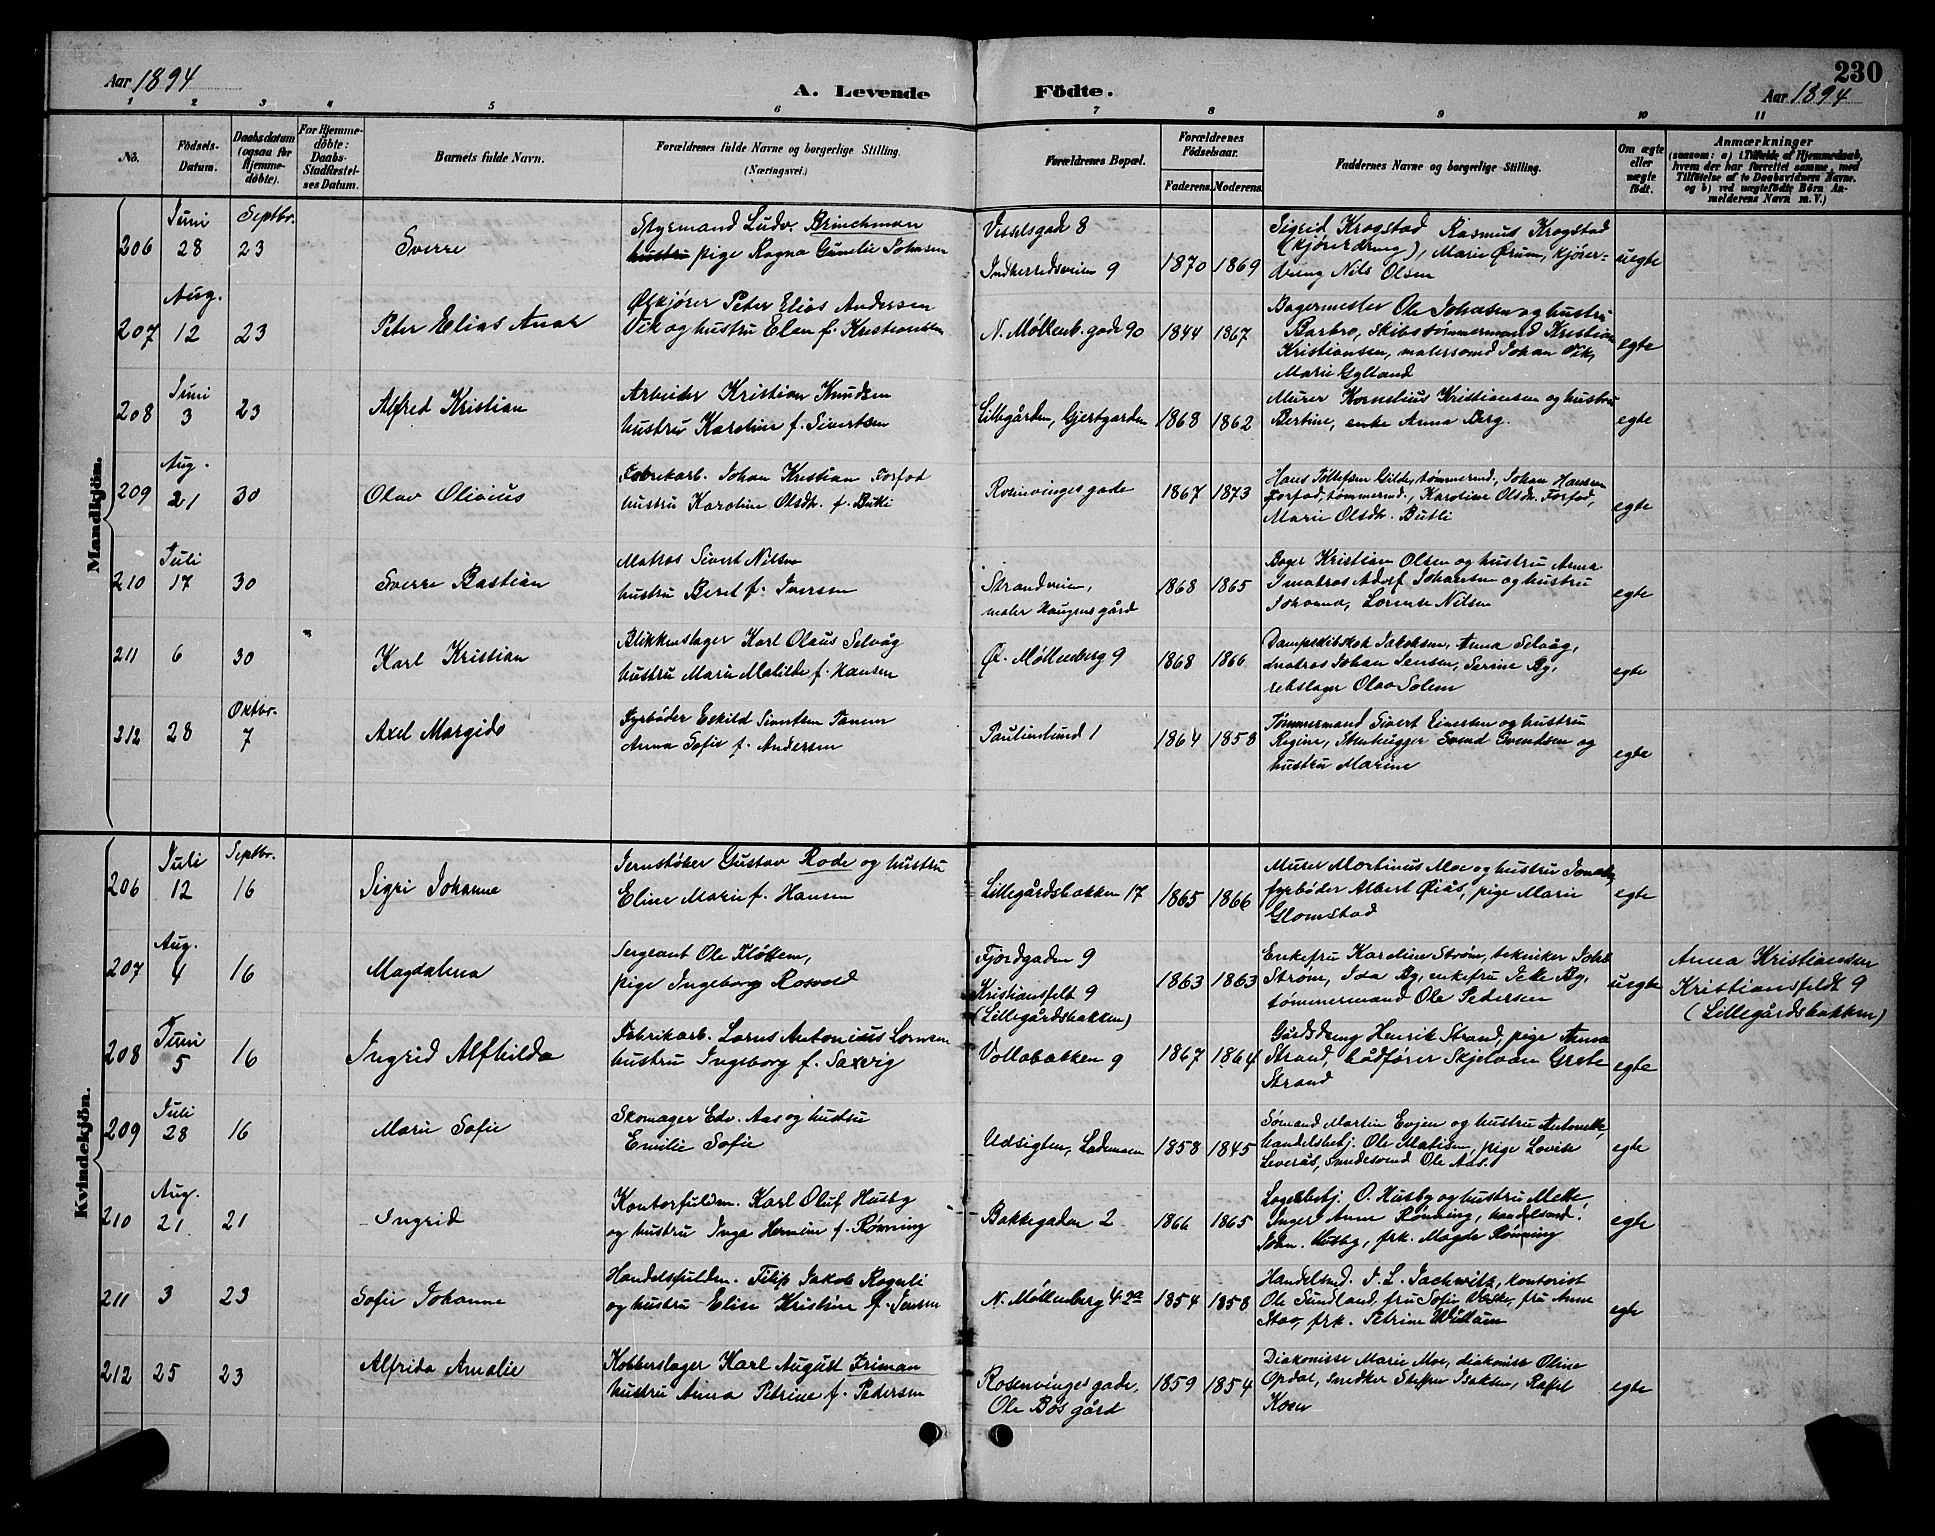 230
Aar 1894
A. Levende Födte.
Aar 1894
1 2 3 4 5 6 7 8 9 10 11
No.
Födsels-Datum.
Daabsdatum (ogsaa for Hjemme-döbte).
For Hjemme-döbte: Daabs-Stadfæstel-ses Datum.
Barnets fulde Navn.
Forældrenes fulde Navne og borgerlige Stilling.
(Næringsvei.)
Forældrenes Bopæl.
Forældrenes Födselsaar.
Faderens. Moderens.
Faddernes Navne og borgerlige Stilling.
Om ægte eller uægte födt.
Anmærkninger
(saasom: a) i Tilfælde af Hjemmedaab, hvem der har forrettet samme, med Tilföielse af to Daabsvidners Navne, og b) ved uægtefödte Börn An-melderens Navn m. V.)
Mandkjön.
206 Juni 28 Septbr. 23 Sverre
Styrmand Ludv. Brinchman
hustru pige Ragna Gunelie Johnsen
Vesselsgade 8
Indherredsveien 9
1870 1869
Sigrid Krogstad Rasmus Krogstad
(kjørerdreng), Marie Ørum, kjører-
dreng Nils Olsen
uegte
207 Aug. 12 23 Peter Elias
Ølkjører Peter Elias Andersen
Vik og hustru Elen f. Kristiansen
N. Møllenb. gade 90
1844 1867
Bagermester Ole Johnsen og hustru
Barbro, skibstømmermand Kristian
Kristiansen, malersvend Johan Vik,
Marie Gylland
egte
208 Juni 3 23 Alfred Kristian
Arbeider Kristian Knudsen
hustru Karoline f. Sivertsen
Lillegården, Gjertgarden
1868 1862
Murer Kornelius Kristiansen og hustru
Bertine, enke Anna Berg.
egte
209 Aug. 21 30 Olav Olivius
Fabrikarb. Johan Kristian Forfod
hustru Karoline Olsdtr. f. Butli
Rosenvinges gade
1867 1873
Hans Tollefsen Gilde, tømmermd., Johan Hansen
Forfod, tømmermd., Karoline Olsdtr. Forfod,
Marie Olsdtr. Butli
egte
210 Juli 17 30 Sverre Bastian
Matros Sivert Nilsen
hustru Beret f. Iversen
Strandveien,
maler Haugens gård
1868 1865
Bager Kristian Olsen og hustru Anna
matros Adolf Johansen og hustru
Johanna, Lorentse Nilsen
egte
211 6 30 Karl Kristian
Blikkenslager Karl Olaus Selvåg
hustru Marie Matilde f. Hansen
Ø. Møllenberg 9
1868 1866
Dampskibskok Jakobsen, Anna Selvåg,
matros Johan Jensen, Serine By,
rebslager Olav Solem
egte
212 28 Oktbr. 7 Axel Margido
Fyrbøder Eskild Sivertsen
Anna Sofie f. Andersen
Paulinelund 1
1864 1858
Tømmermand Sivert Eivertsen og hustru
Regine, Stenhugger Svend Svendsen og
hustru Marine
egte
Kvindekjön.
206 Juli 12 Septbr. 16 Sigri Johanne
Jernstøber Gustav Rode og hustru
Eline Marie f. Hansen
Lillegårdsbakken 17
1865 1866
Murer Martinus Moe og hustru
fyrbøder Albert Øiås, pige Marie
Glomstad
egte
207 Aug. 4 16 Magdalena
Sergeant Ole Fløttem,
pige Ingeborg Rosvold
Fjordgaden 9
Kristiansfelt 9
(Lillegårdsbakken)
1863 1863
Enkefru Karoline Strøm, tekniker Johs
Strøm, Ida By, enkefru Jette By,
tømmermand Ole Pedersen
uegte
Anna Kristiansen
Kristiansfeldt 9
(Lillegårdsbakken)
208 Juni 5 16 Ingrid Alfhilda
Fabrikarb. Lorns Antonius Lornsen
hustru Ingeborg f. Saxvig
Vollabakken 9
1867 1864
Gårdsdreng Henrik Strand, pige Anna
Strand, bådfører Skjelvan Grete
Strand
egte
209 Juli 28 16 Marie Sofie
Skomager Edv. Aas og hustru
Emilie Sofie
Udsigten, Lademoen
1858 1845
Sømand Martin Evjen og hustru Antonette,
handelsbetj. Ole Matisen, pige Lovise
Leverås, smedesvend Ole Aas.
egte
210 Aug. 21 21 Ingrid
Kontorfuldm. Karl Oluf Husby
og hustru Inga Hermine f. Rønning
Bakkegaden 2
1866 1865
Lagerbetj. O. Husby og hustru Mette
Inger Anne Rønning, handelsmd.
Johs. Husby, frk. Magda Rønning
egte
211 3 23 Sofie Johanne
Handelsfuldm. Filip Jakob Rognli
og hustru Elise Kristine f. Jensen
N. Møllenberg 42a
1854 1858
Handelsmd. J. L. Jachwitz, kontorist
Ole Sundland, fru Sofie, fru Anne
Stav, frk. Petrine
egte
212 25 23 Alfrida Amalie
Kobberslager Karl August Friman
hustru Anna Petrine f. Pedersen
Rosenvinges gade,
Ole Bøs gård
1859 1854
Diakonisse Marie Moe, diakonisse Oline
Opdal, snedker Steffen Isaksen, Rafel
egte